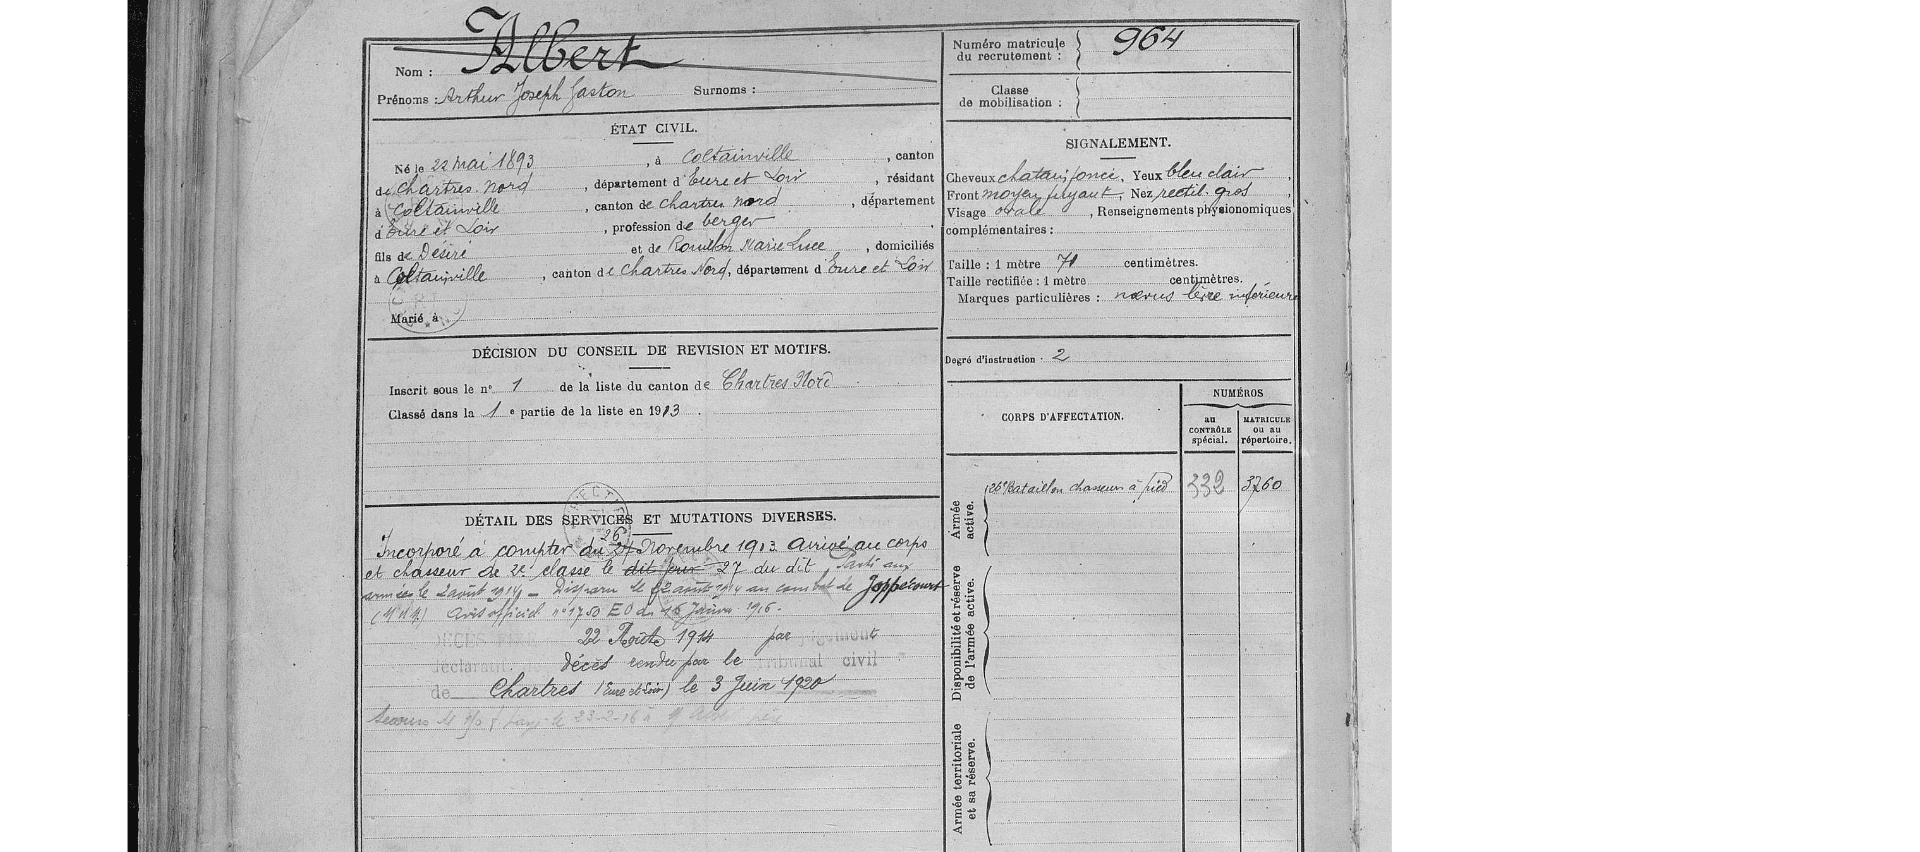 Nom : Albert
Prénoms : Arthur Joseph Gaston Surnoms :
Numéro matricule du recrutement : 964
Classe de mobilisation :
ÉTAT CIVIL.
Né le 22 mai 1893, à Coltainville, canton
de Chartres Nord, département d'Eure et Loir, résidant
à Coltainville, canton de Chartres Nord, département
d'Eure et Loir, profession de berger,
fils de Désiré et de Marie Luce, domiciliés
à Coltainville, canton de Chartres Nord, département d'Eure et Loir
Marié à
SIGNALEMENT.
Cheveux chatain foncé, Yeux bleu clair,
Front moyen fuyant, Nez rectil. gros,
Visage ovale, Renseignements physionomiques
complémentaires :
Taille : 1 mètre 71 centimètres.
Taille rectifiée : 1 mètre centimètres.
Marques particulières : nœvus lèvre inférieure
Degré d'instruction : 2
DÉCISION DU CONSEIL DE REVISION ET MOTIFS.
Inscrit sous le n° 1 de la liste du canton de Chartres Nord
Classé dans la 1e partie de la liste en 1913.
CORPS D'AFFECTATION.
NUMÉROS
au CONTRÔLE spécial.
MATRICULE ou au répertoire.
Armée active.
26e Bataillon chasseurs à pied 332 3760
Disponibilité et réserve de l'armée active.
Armée territoriale et sa réserve.
DÉTAIL DES SERVICES ET MUTATIONS DIVERSES.
26
Incorporé à compter du 27 Novembre 1913. Arrivé au corps
et chasseur de 2e classe le dit jour 27 du dit. Parti aux
armées le 2 août 1914 – Disparu le 22 août 1914 au combat de Joppécourt
(M M) Avis officiel n° 1750 EO du 16 Janvier 1916.
DÉCÈS 22 Août 1914 par jugement
déclaratif décès rendu par le Tribunal civil
de Chartres (Eure et Loir) le 3 Juin 1920
Secours payé le 23-2-16 à M père